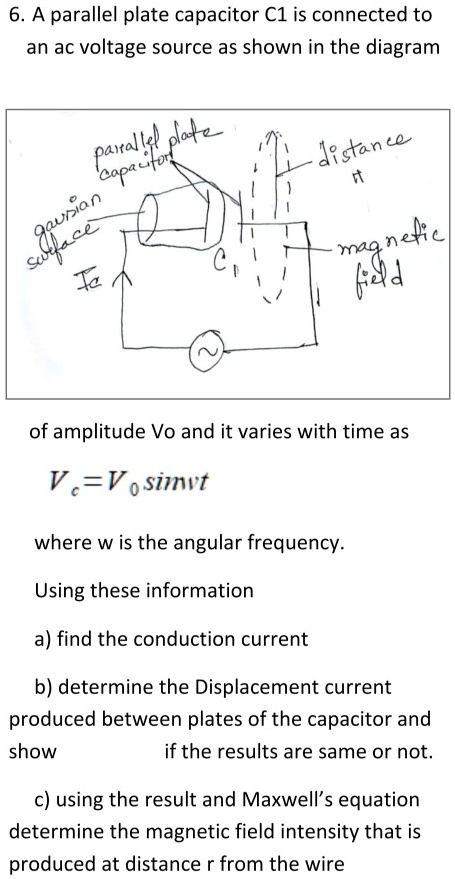 6. A parallel plate capacitor C1 is connected to
an ac voltage source as shown in the diagram
parallel plate
capacitor
distance
r
gaussian
surface
magnetic
field
C1
Ic
~
of amplitude Vo and it varies with time as
Vc=V0sinwt
where w is the angular frequency.
Using these information
a) find the conduction current
b) determine the Displacement current
produced between plates of the capacitor and
show if the results are same or not.
c) using the result and Maxwell’s equation
determine the magnetic field intensity that is
produced at distance r from the wire